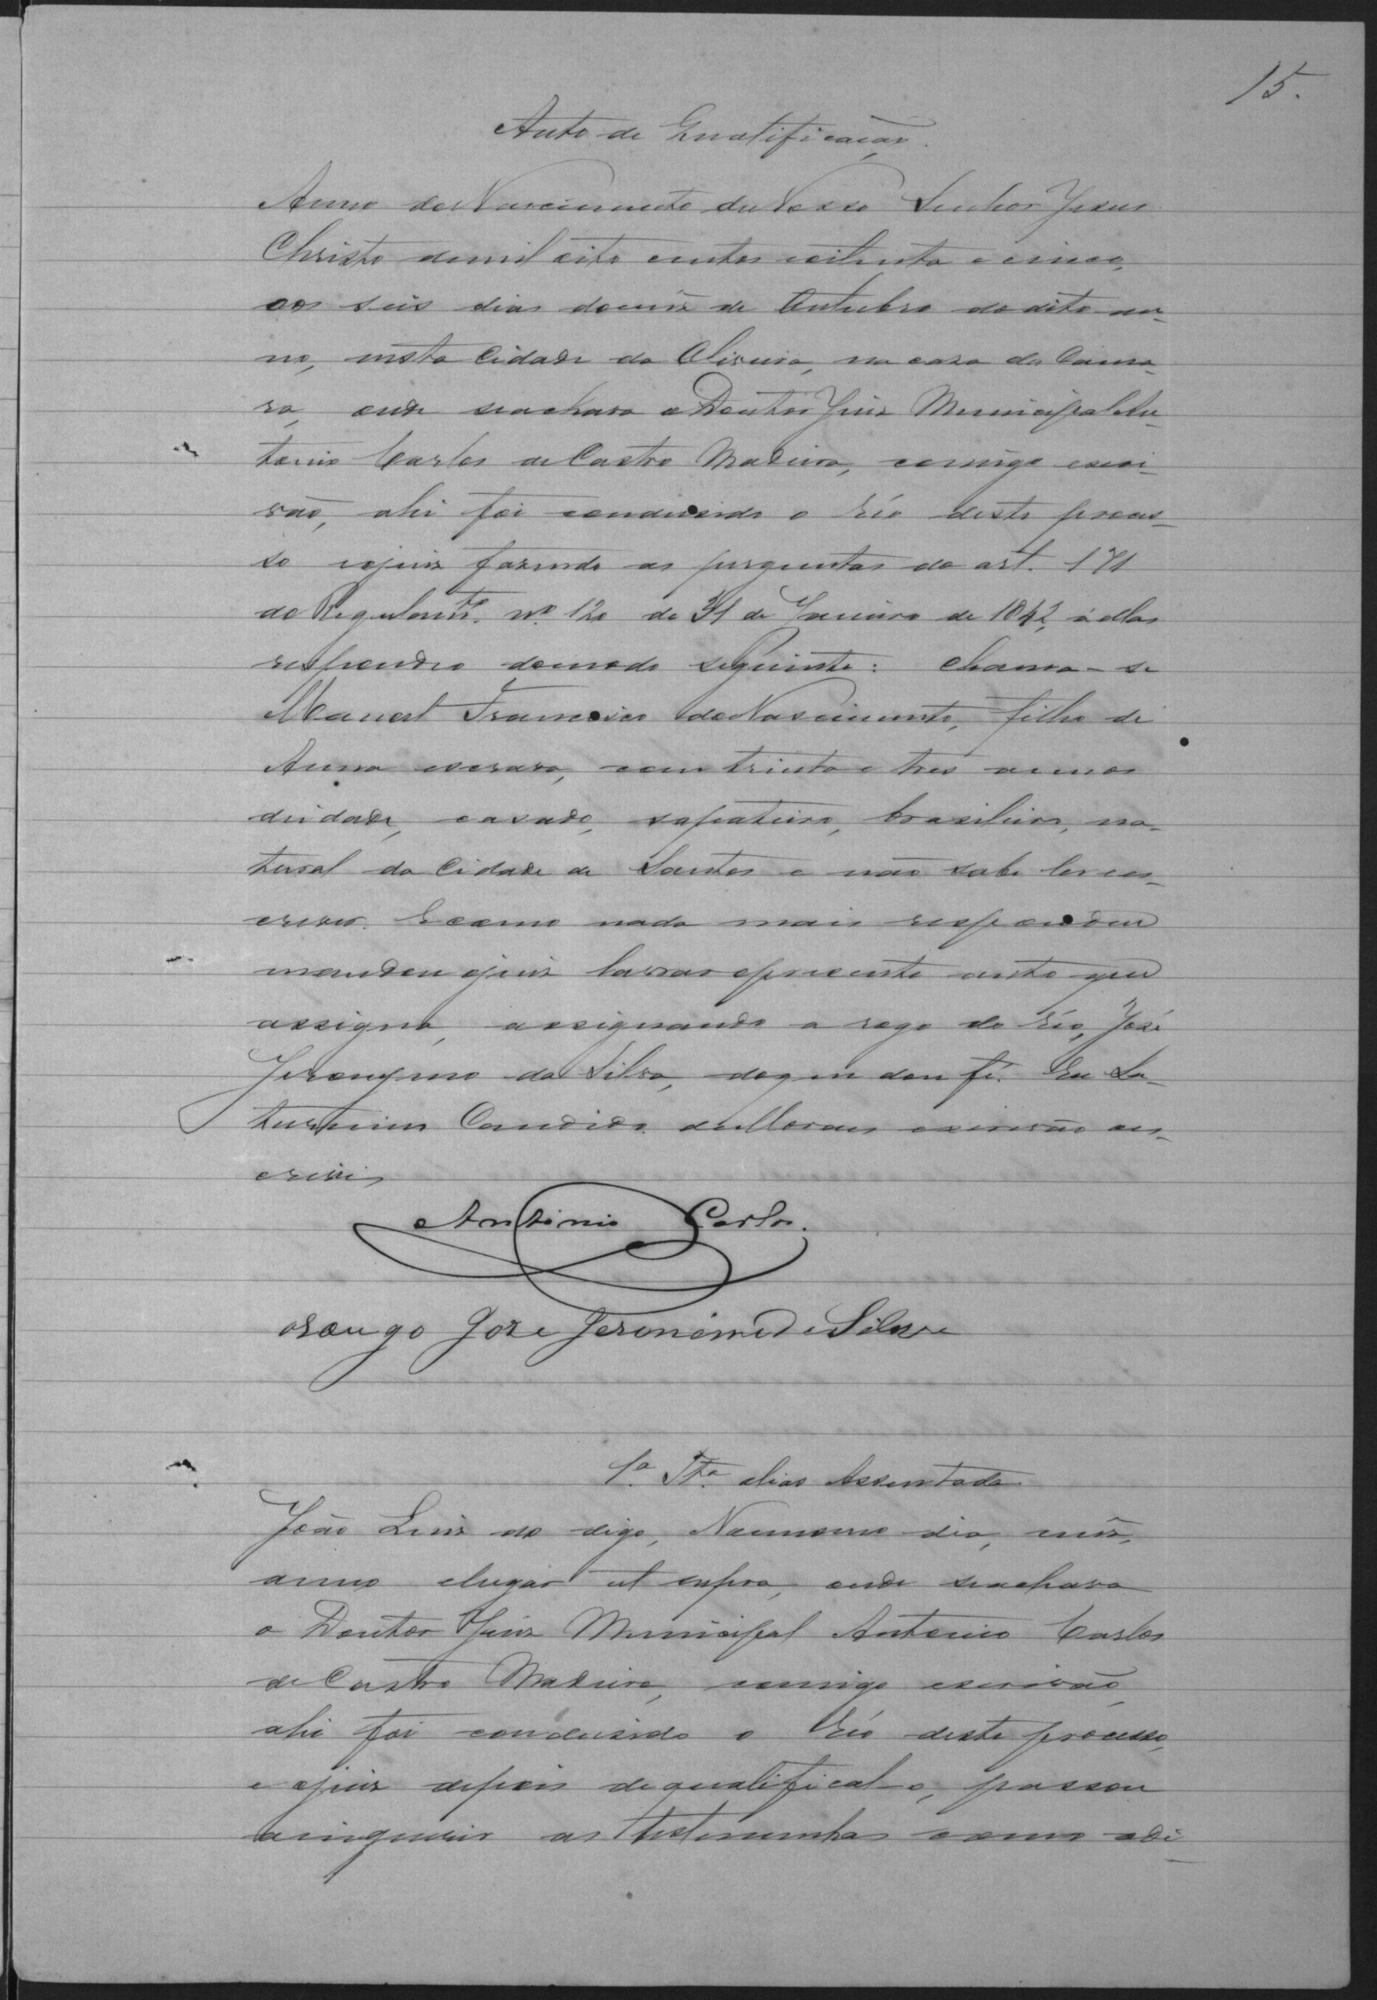 15.
Auto de Qualificação.
Anno do Nascimento de Nosso Senhor Jesus
Christo de mil oito centos e oitenta e cinco,
aos seis dias do mêz de Outubro do dito an-
no, nesta Cidade da Oliveira, na casa da Cama-
ra, onde se achava o Doutor Juiz Municipal An-
tonio Carlos de Castro Madeira, comigo escri-
vão, ahi foi conduzido o réo deste proces-
so e o juiz fazendo as perguntas do art. 171
do Regulamto. nº. 120 de 31 de Janeiro de 1842, a ellas
respondeo do modo seguinte: Chama-se
Manoel Francisco do Nascimento, filho de
Anna escrava, com trinta e tres annos
de idade, casado, sapateiro, brasileiro, na-
tural da Cidade de Santos e não sabe ler e es-
crever. E como nada mais respondeu
mandou o juiz lavrar o presente auto que
assigna, assignando a rogo do réo, José
Jeronymo da Silva, do que dou fé. Eu Sa-
turnino Candido de Moraes escrivão es-
crevi
Antonio Carlos.
a Jose Jeronimo da Silva
1ª. Ttª. alias Assentada
João Luis do digo, No mesmo dia, mêz,
anno e lugar ut supra, onde se achava
o Doutor Juiz Municipal Antonio Carlos
de Castro Madeira, comigo escrivão,
ahi foi conduzido o Réo deste processo,
e o juiz depois de qualifical-o, passou
a inquerir as testemunhas como adi-